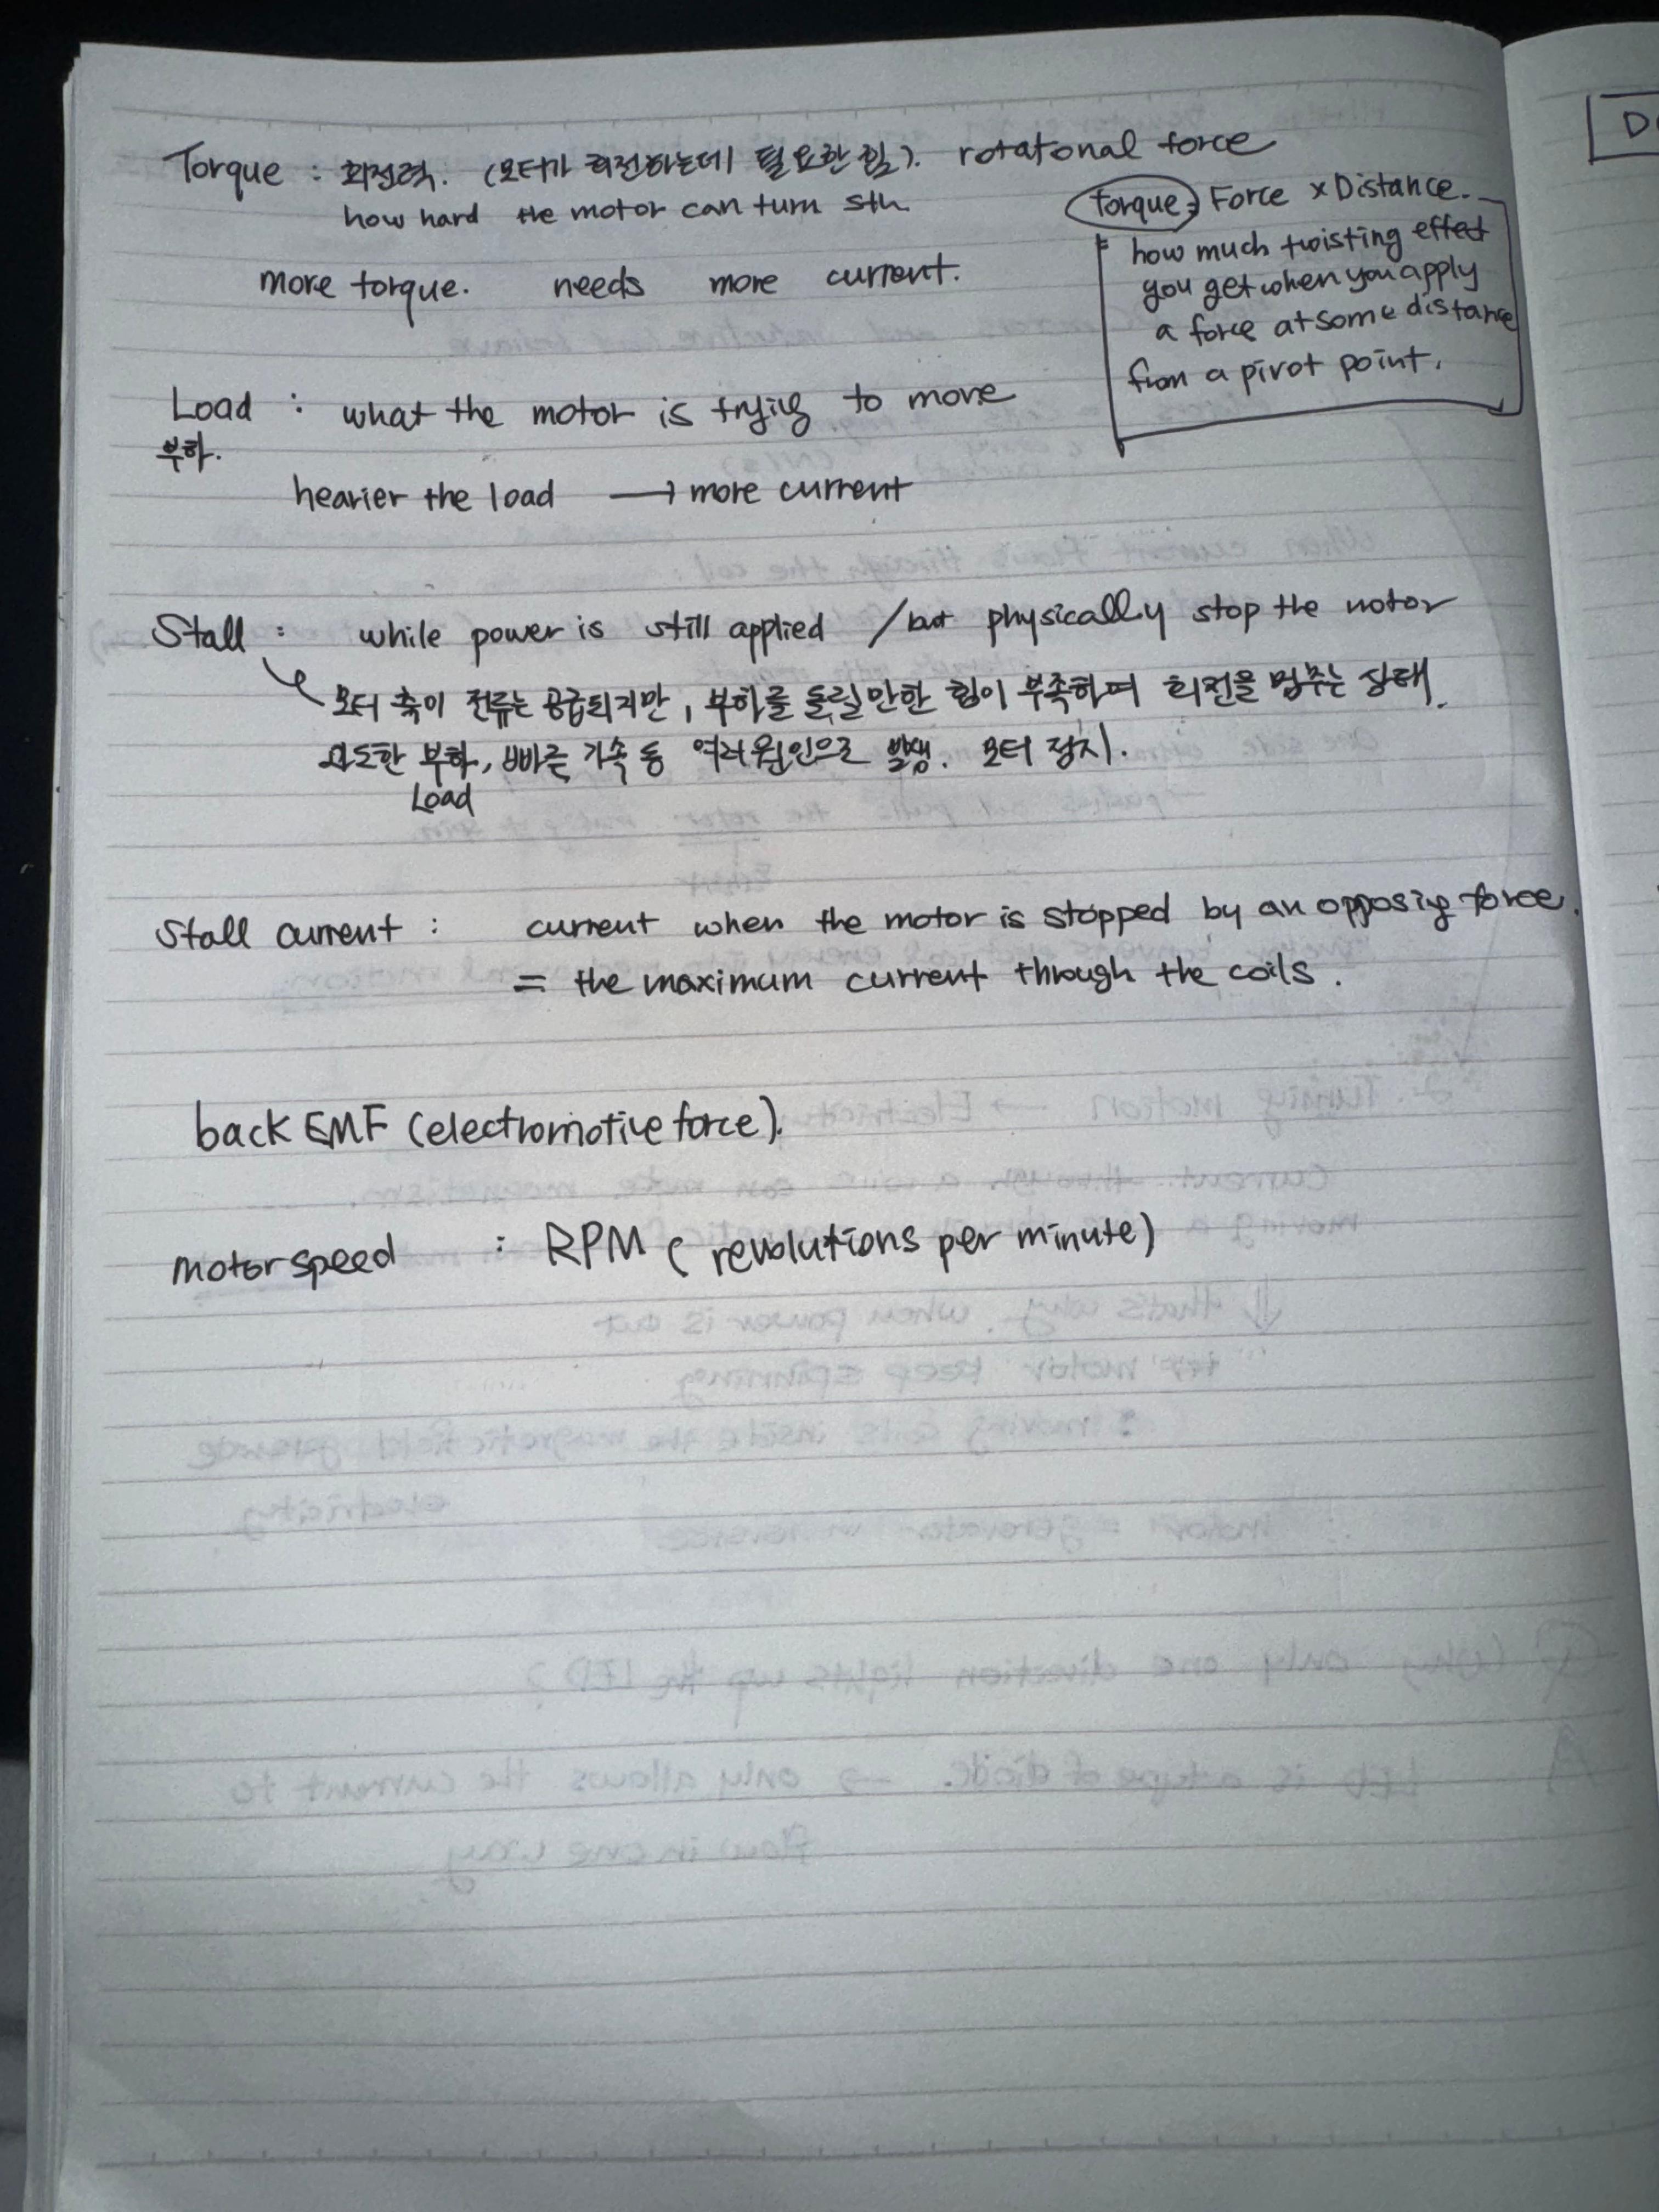 Torque : 회전력. (모터가 회전하는데 필요한 힘). rotational force
how hard the motor can turn sth
torque = Force × Distance.
how much twisting effect
you get when you apply
a force at some distance
from a pivot point.
more torque. needs more current.
Load : what the motor is trying to move
부하.
heavier the load → more current
Stall : while power is still applied / but physically stop the motor
모터 축이 전류는 공급되지만, 부하를 돌릴만한 힘이 부족하여 회전을 멈추는 상태.
과도한 부하, 빠른 가속 등 여러 원인으로 발생. 모터 정지.
Load
Stall current : current when the motor is stopped by an opposing force.
= the maximum current through the coils.
back EMF (electromotive force).
motor speed : RPM ( revolutions per minute)